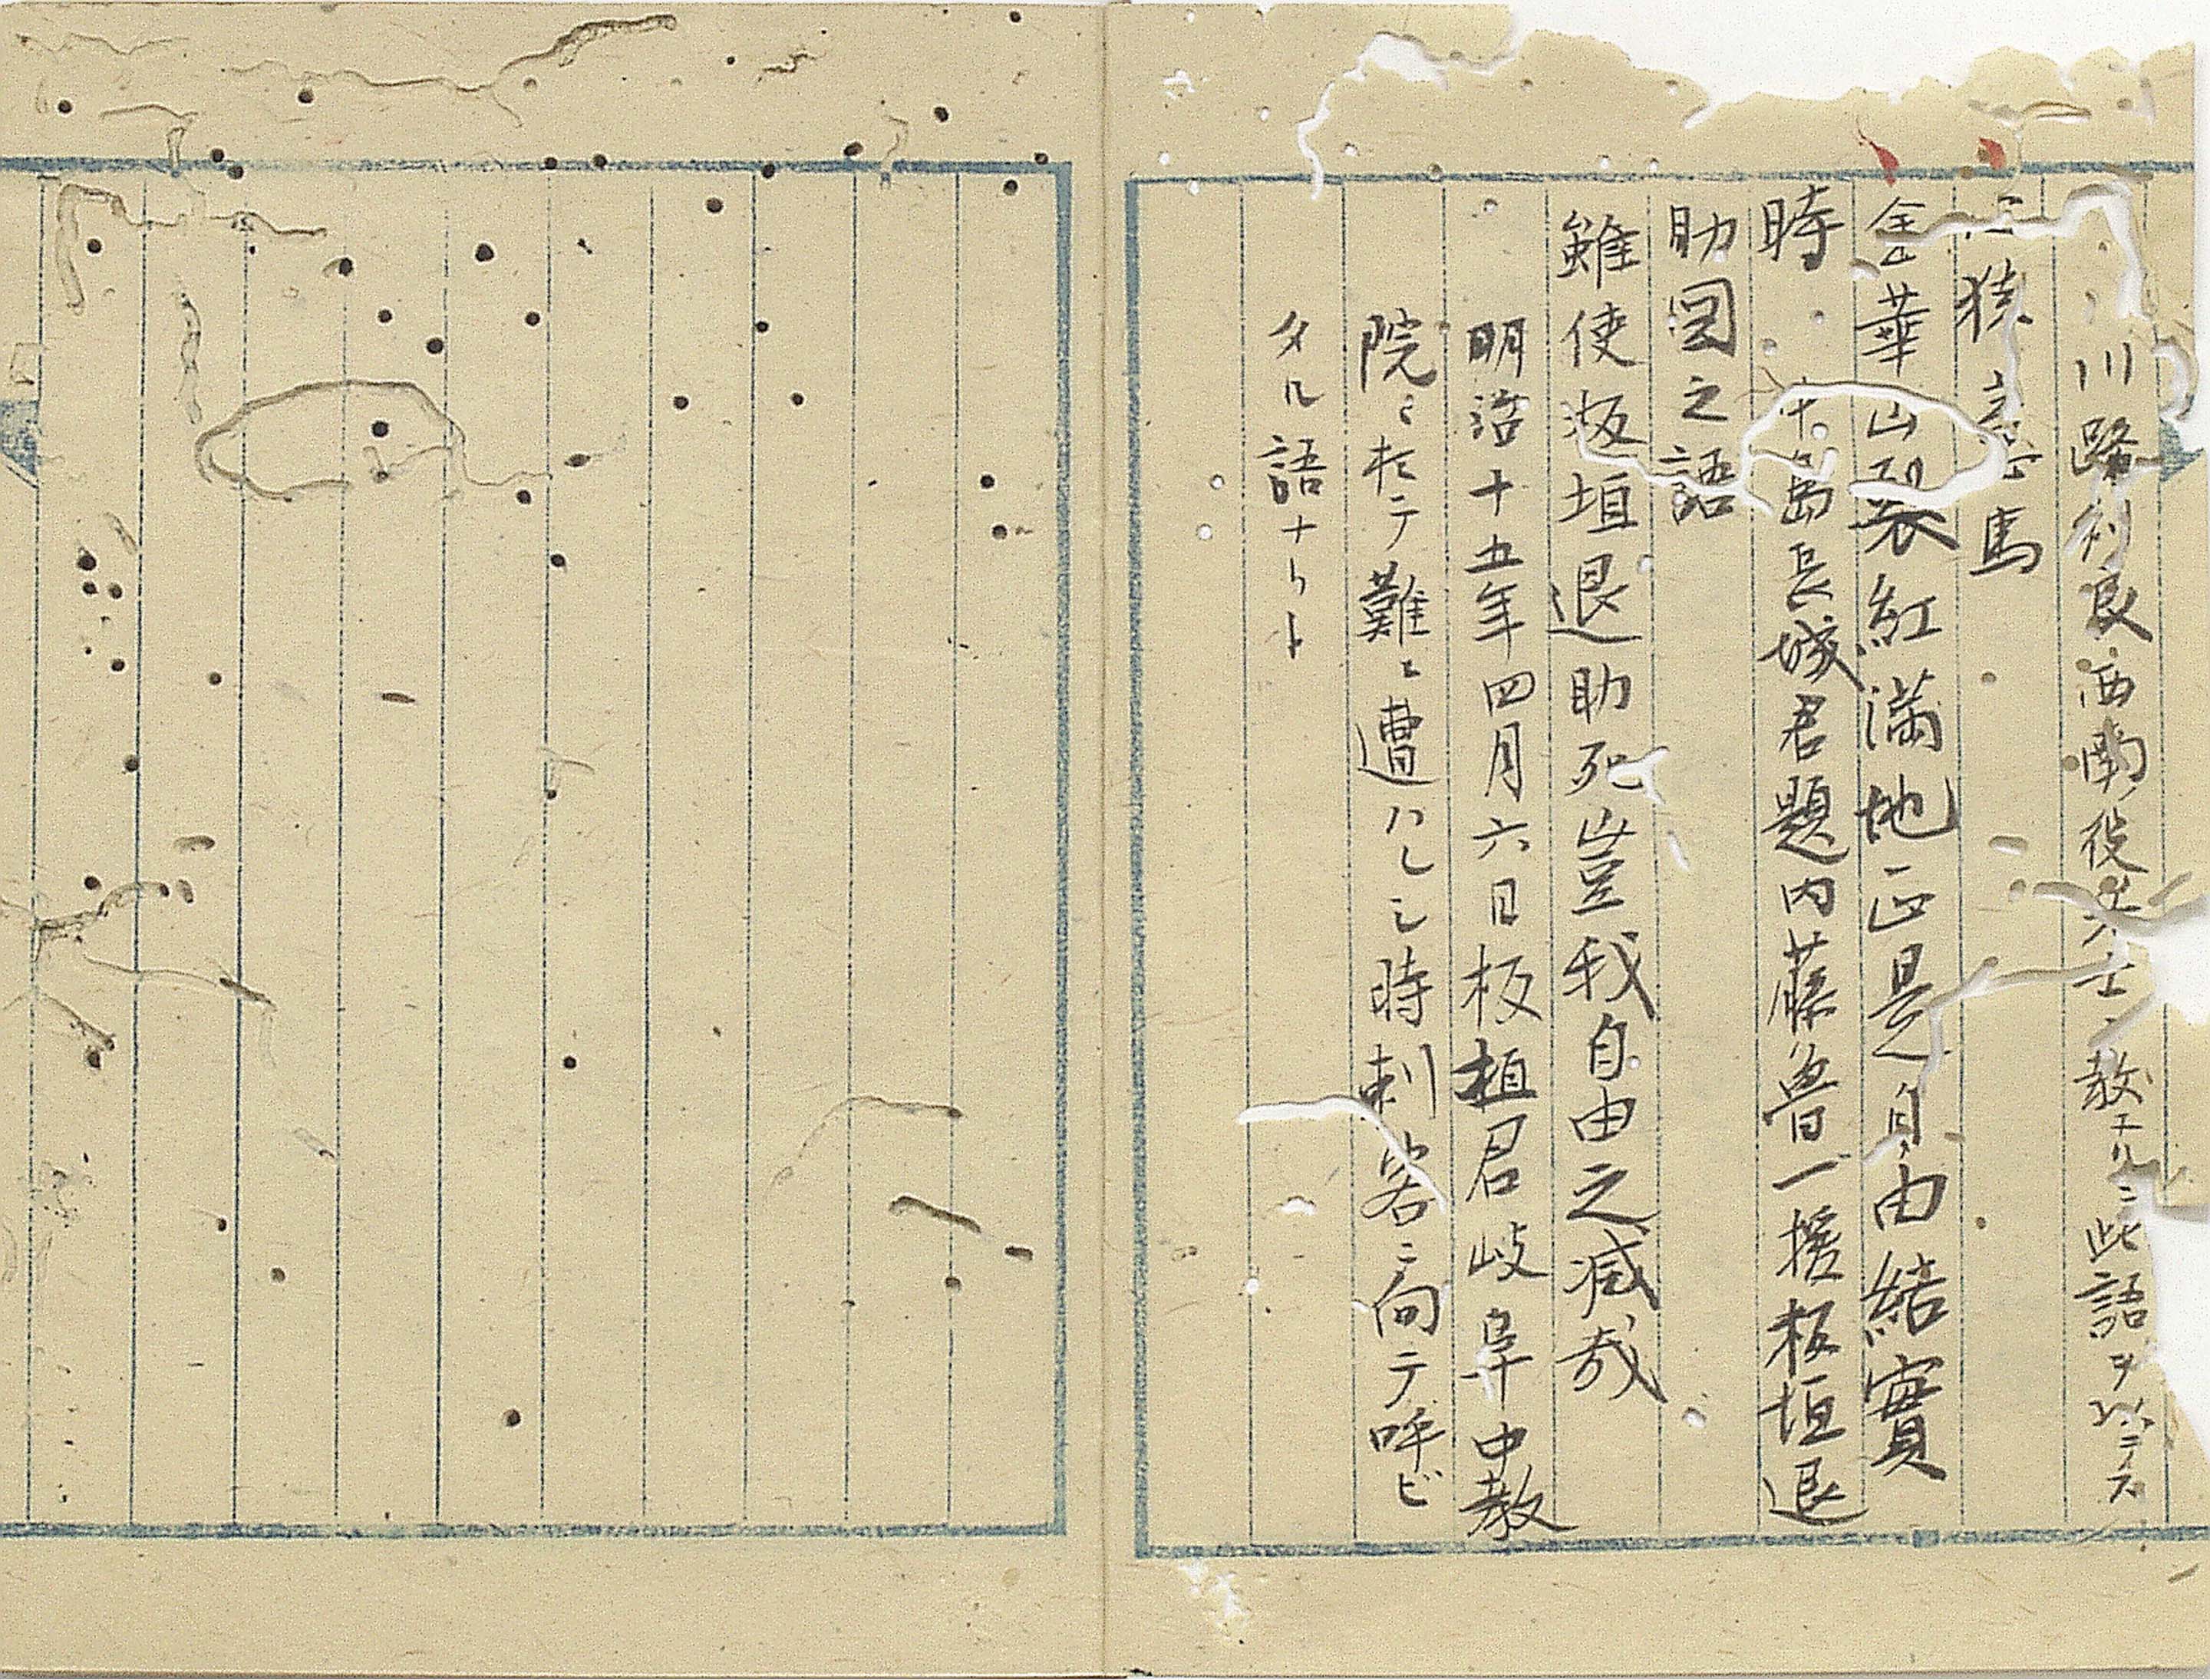 川路利良西南役兵士ニ教エルニ此語ヲ以テス
猿意馬
金華山裂紅満地正是自由結實
時 中島長城君題内藤魯一援板垣退
助図之語
雖使板垣退助死豈我自由之滅哉
明治十五年四月六日板植君岐阜中教
院ニ於テ難ニ遭ハレシ時刺客ニ向テ呼ビ
タル語ナリト